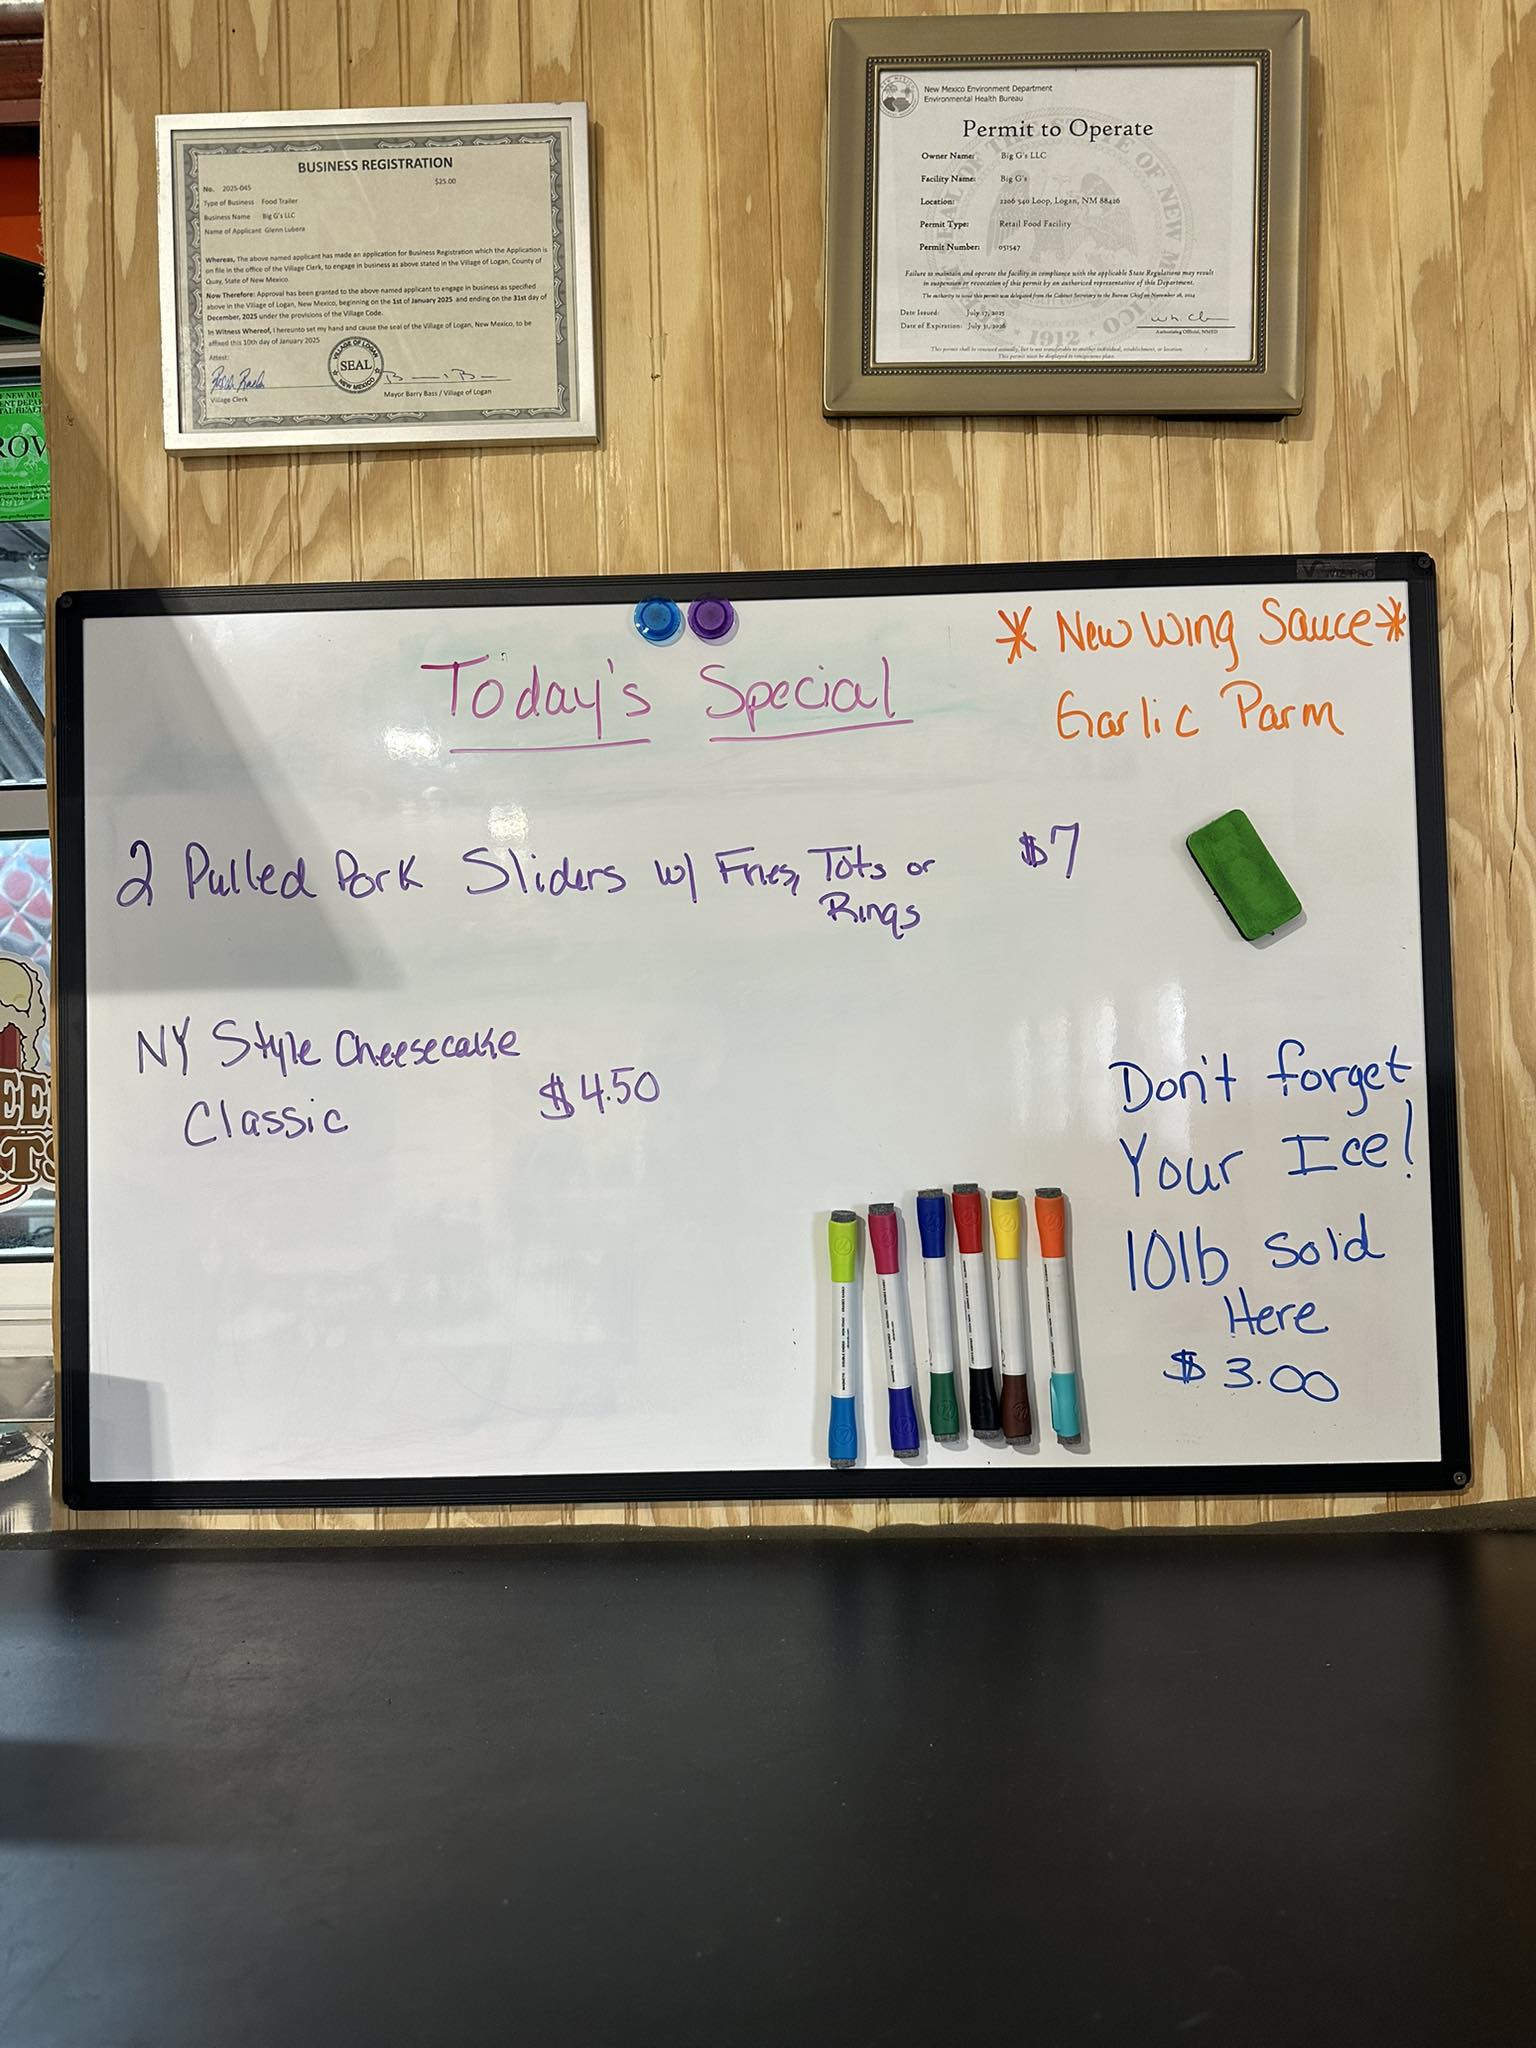 BUSINESS REGISTRATION
$25.00
No. 2025-045
Type of Business Food Trailer
Business Name Big G's LLC
Name of Applicant Glenn Lubera
Whereas, The above named applicant has made an application for Business Registration which the Application is
on file in the office of the Village Clerk, to engage in business as above stated in the Village of Logan, County of
Quay, State of New Mexico.
Now Therefore: Approval has been granted to the above named applicant to engage in business as specified
above in the Village of Logan, New Mexico, beginning on the 1st of January 2025 and ending on the 31st day of
December, 2025 under the provisions of the Village Code.
In Witness Whereof, I hereunto set my hand and cause the seal of the Village of Logan, New Mexico, to be
affixed this 10th day of January 2025
Attest:
VILLAGE OF LOGAN
SEAL
NEW MEXICO
Village Clerk
Mayor Barry Bass / Village of Logan
New Mexico Environment Department
Environmental Health Bureau
Permit to Operate
Owner Name: Big G's LLC
Facility Name: Big G's
Location: 2206 540 Loop, Logan, NM 88426
Permit Type: Retail Food Facility
Permit Number: 051547
Failure to maintain and operate the facility in compliance with the applicable State Regulations may result
in suspension or revocation of this permit by an authorized representative of this Department.
The authority to issue this permit was delegated from the Cabinet Secretary to the Bureau Chief on November 26, 2024
Date Issued: July 17, 2025
Date of Expiration: July 31, 2026
Authorizing Official, NMED
1912
This permit shall be renewed annually, but is not transferable to another individual, establishment, or location.
This permit must be displayed in conspicuous place.
* New Wing Sauce *
Garlic Parm
Today's Special
2 Pulled Pork Sliders w/ Fries, Tots or
Rings
$7
NY Style Cheesecake
Classic
$4.50
Don't forget
Your Ice!
10lb Sold
Here
$3.00